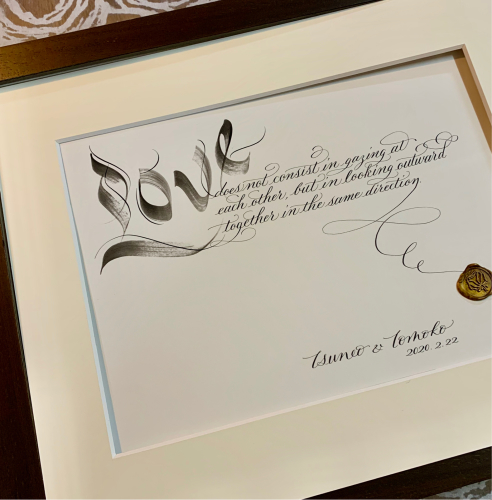 Love
does not consist in gazing at
each other, but in looking outward
together in the same direction
Tsuneo & Tomoko
2020.2.22